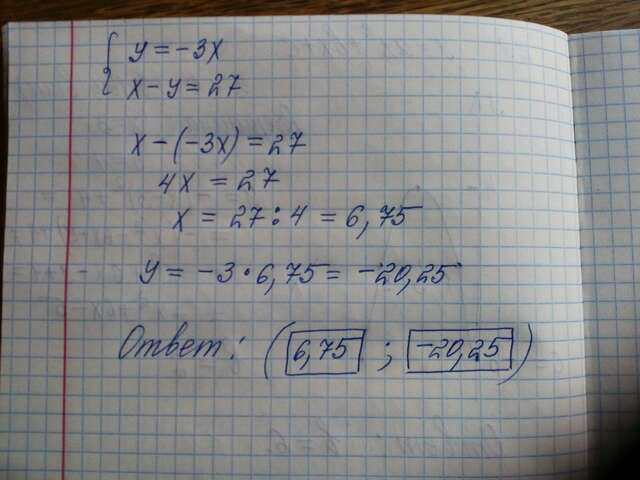 { y = -3x
x - y = 27
x - (-3x) = 27
4x = 27
x = 27 : 4 = 6,75
y = -3 · 6,75 = -20,25
Ответ: (6,75 ; -20,25)